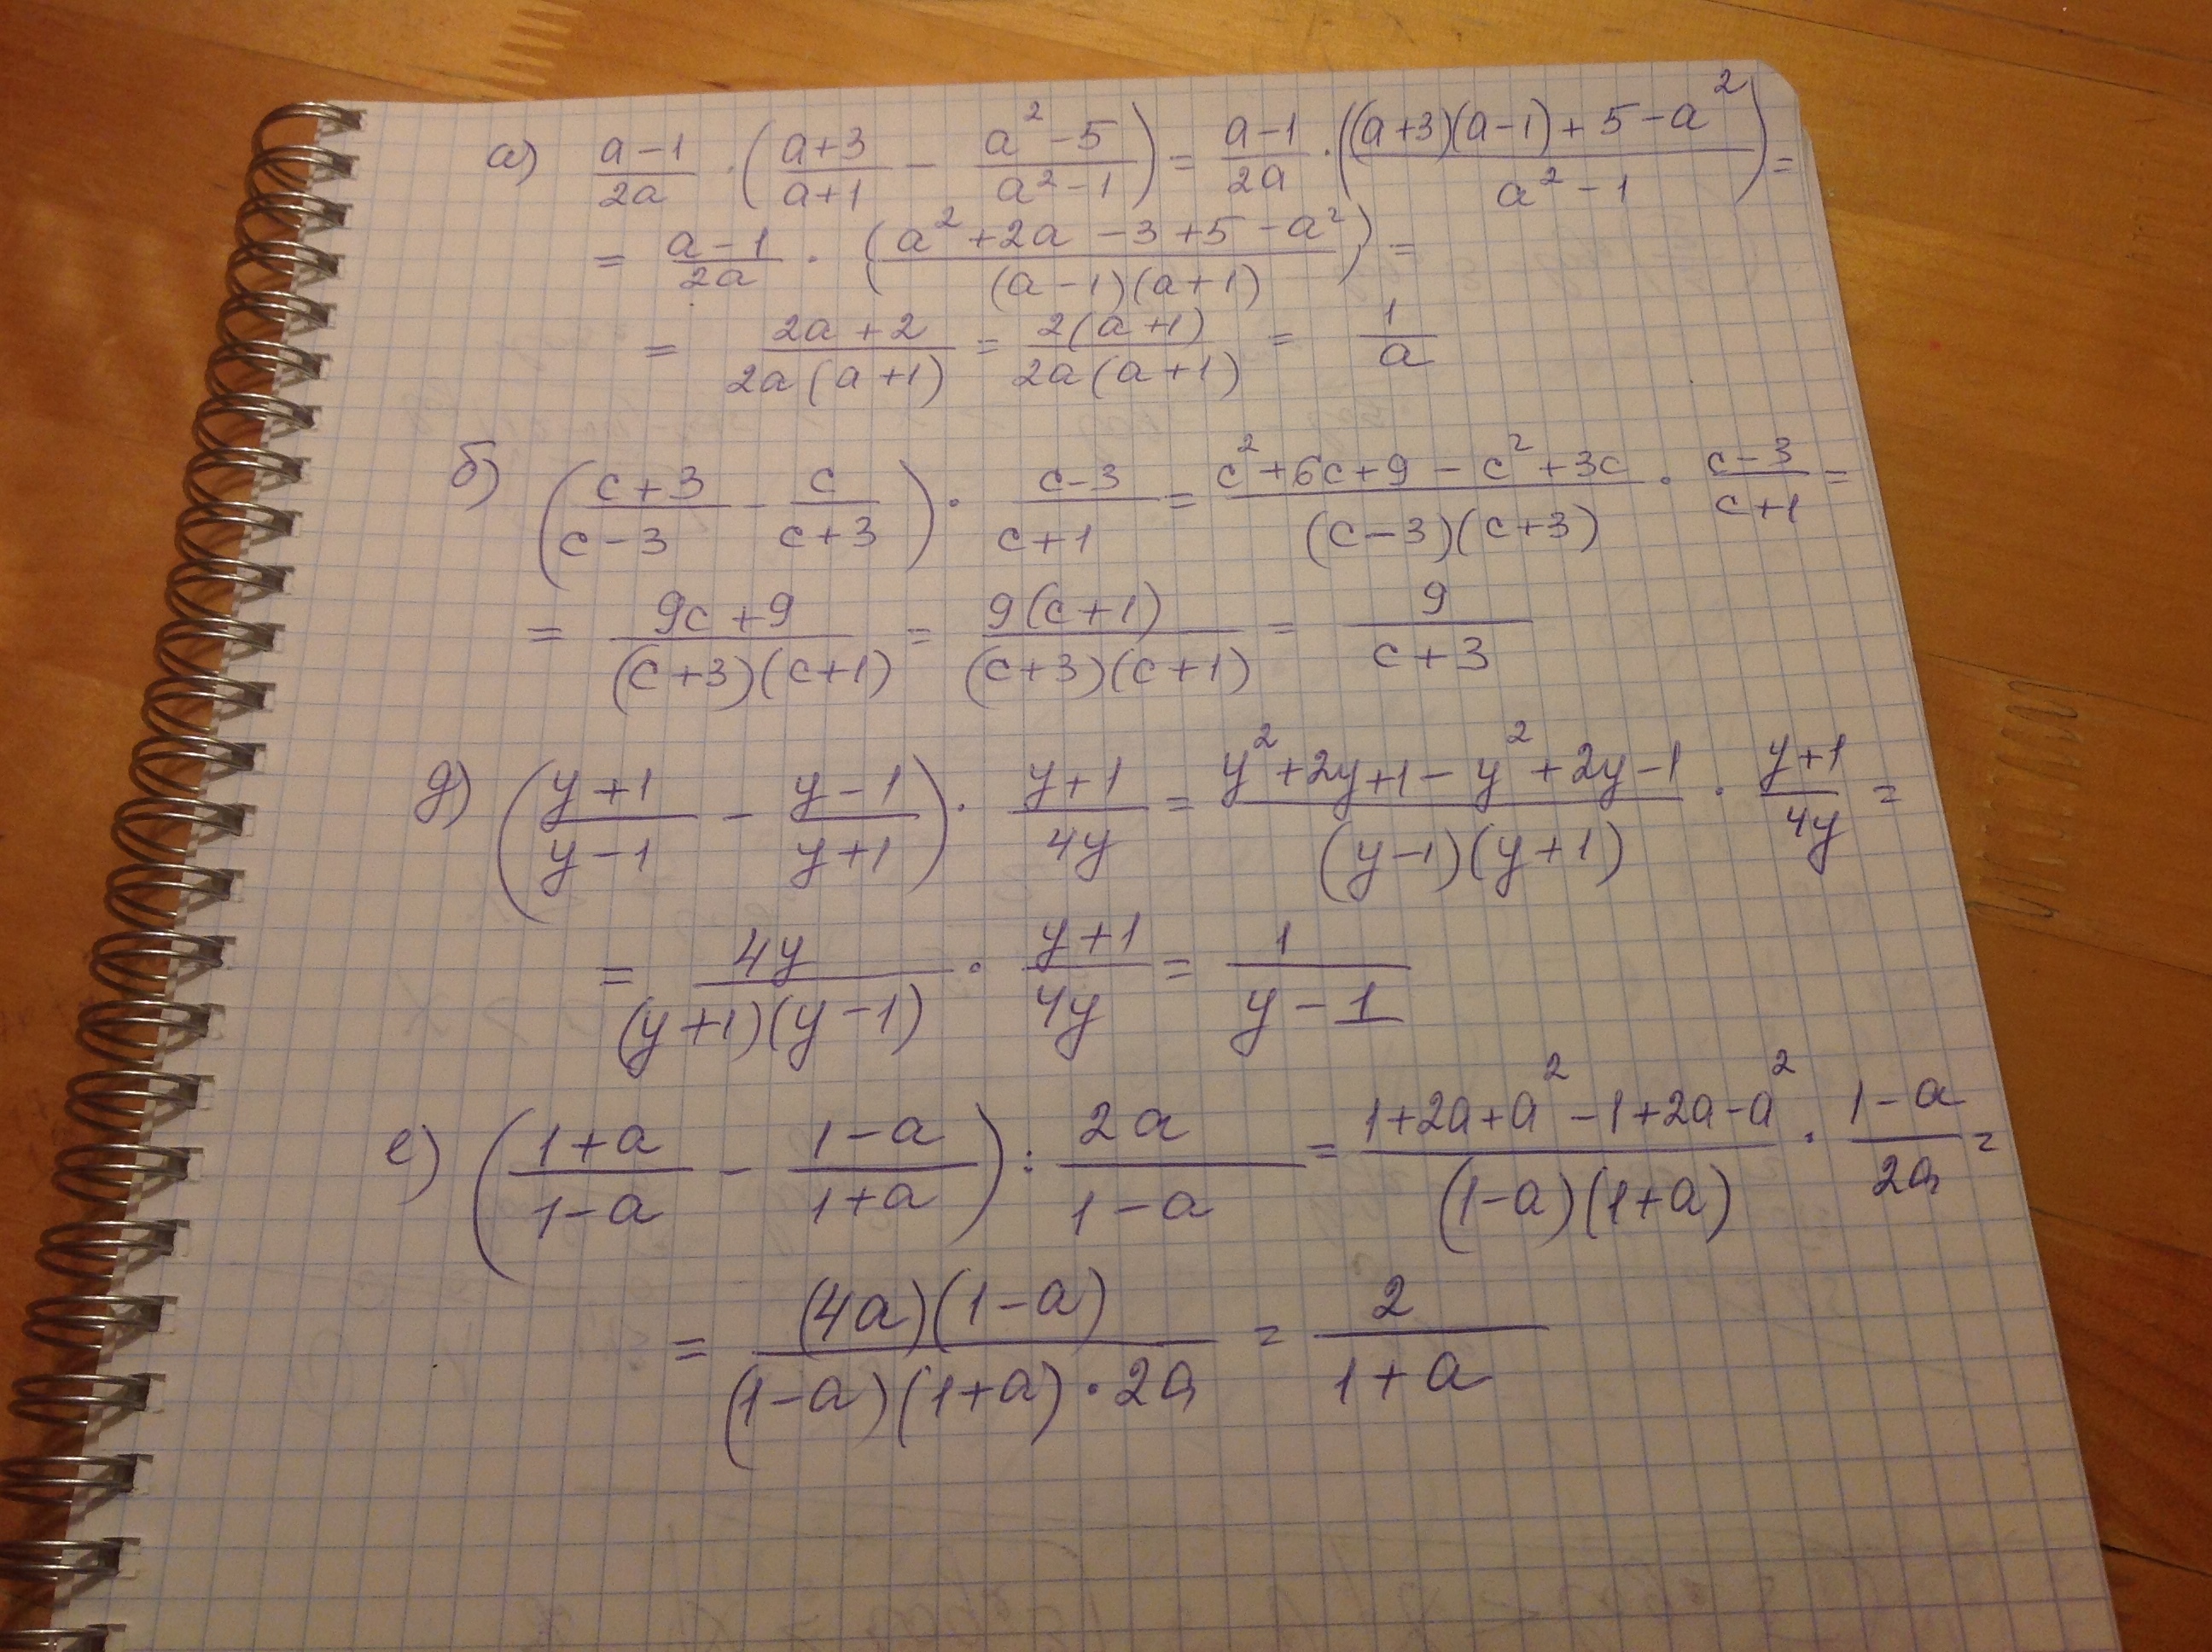 а) (a-1)/(2a) · ((a+3)/(a+1) - (a²-5)/(a²-1)) = (a-1)/(2a) · (((a+3)(a-1)+5-a²)/(a²-1)) =
= (a-1)/(2a) · ((a²+2a-3+5-a²)/((a-1)(a+1))) =
= (2a+2)/(2a(a+1)) = (2(a+1))/(2a(a+1)) = 1/a
б) ((c+3)/(c-3) - c/(c+3)) · (c-3)/(c+1) = (c²+6c+9-c²+3c)/((c-3)(c+3)) · (c-3)/(c+1) =
= (9c+9)/((c+3)(c+1)) = (9(c+1))/((c+3)(c+1)) = 9/(c+3)
д) ((y+1)/(y-1) - (y-1)/(y+1)) · (y+1)/(4y) = (y²+2y+1-y²+2y-1)/((y-1)(y+1)) · (y+1)/(4y) =
= (4y)/((y+1)(y-1)) · (y+1)/(4y) = 1/(y-1)
е) ((1+a)/(1-a) - (1-a)/(1+a)) : (2a)/(1-a) = (1+2a+a²-1+2a-a²)/((1-a)(1+a)) · (1-a)/(2a) =
= ((4a)(1-a))/((1-a)(1+a)·2a) = 2/(1+a)